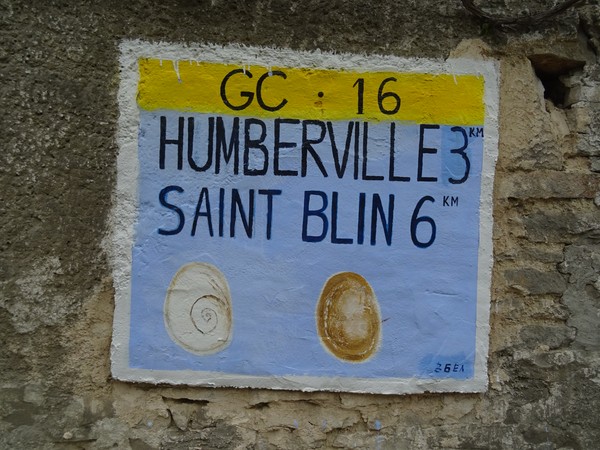 GC : 16
HUMBERVILLE 3 KM
SAINT BLIN 6 KM